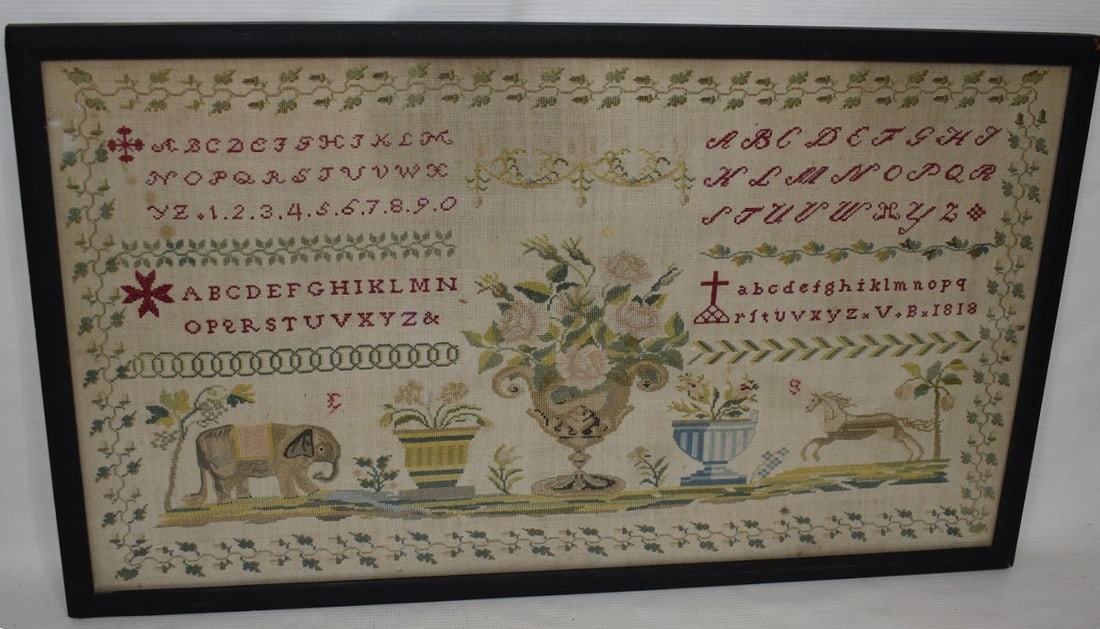 A B C D E F G H I K L M
N O P Q R S T U V W X
Y Z . 1. 2. 3. 4. 5. 6. 7. 8. 9. 0
A B C D E F G H I K L M N
O P Q R S T U V X Y Z &
E
A B C D E F G H I
K L M N O P Q R
S T U V W X Y Z
a b c d e f g h i k l m n o p q
r ſ t u v x y z × V . B × 1818
G